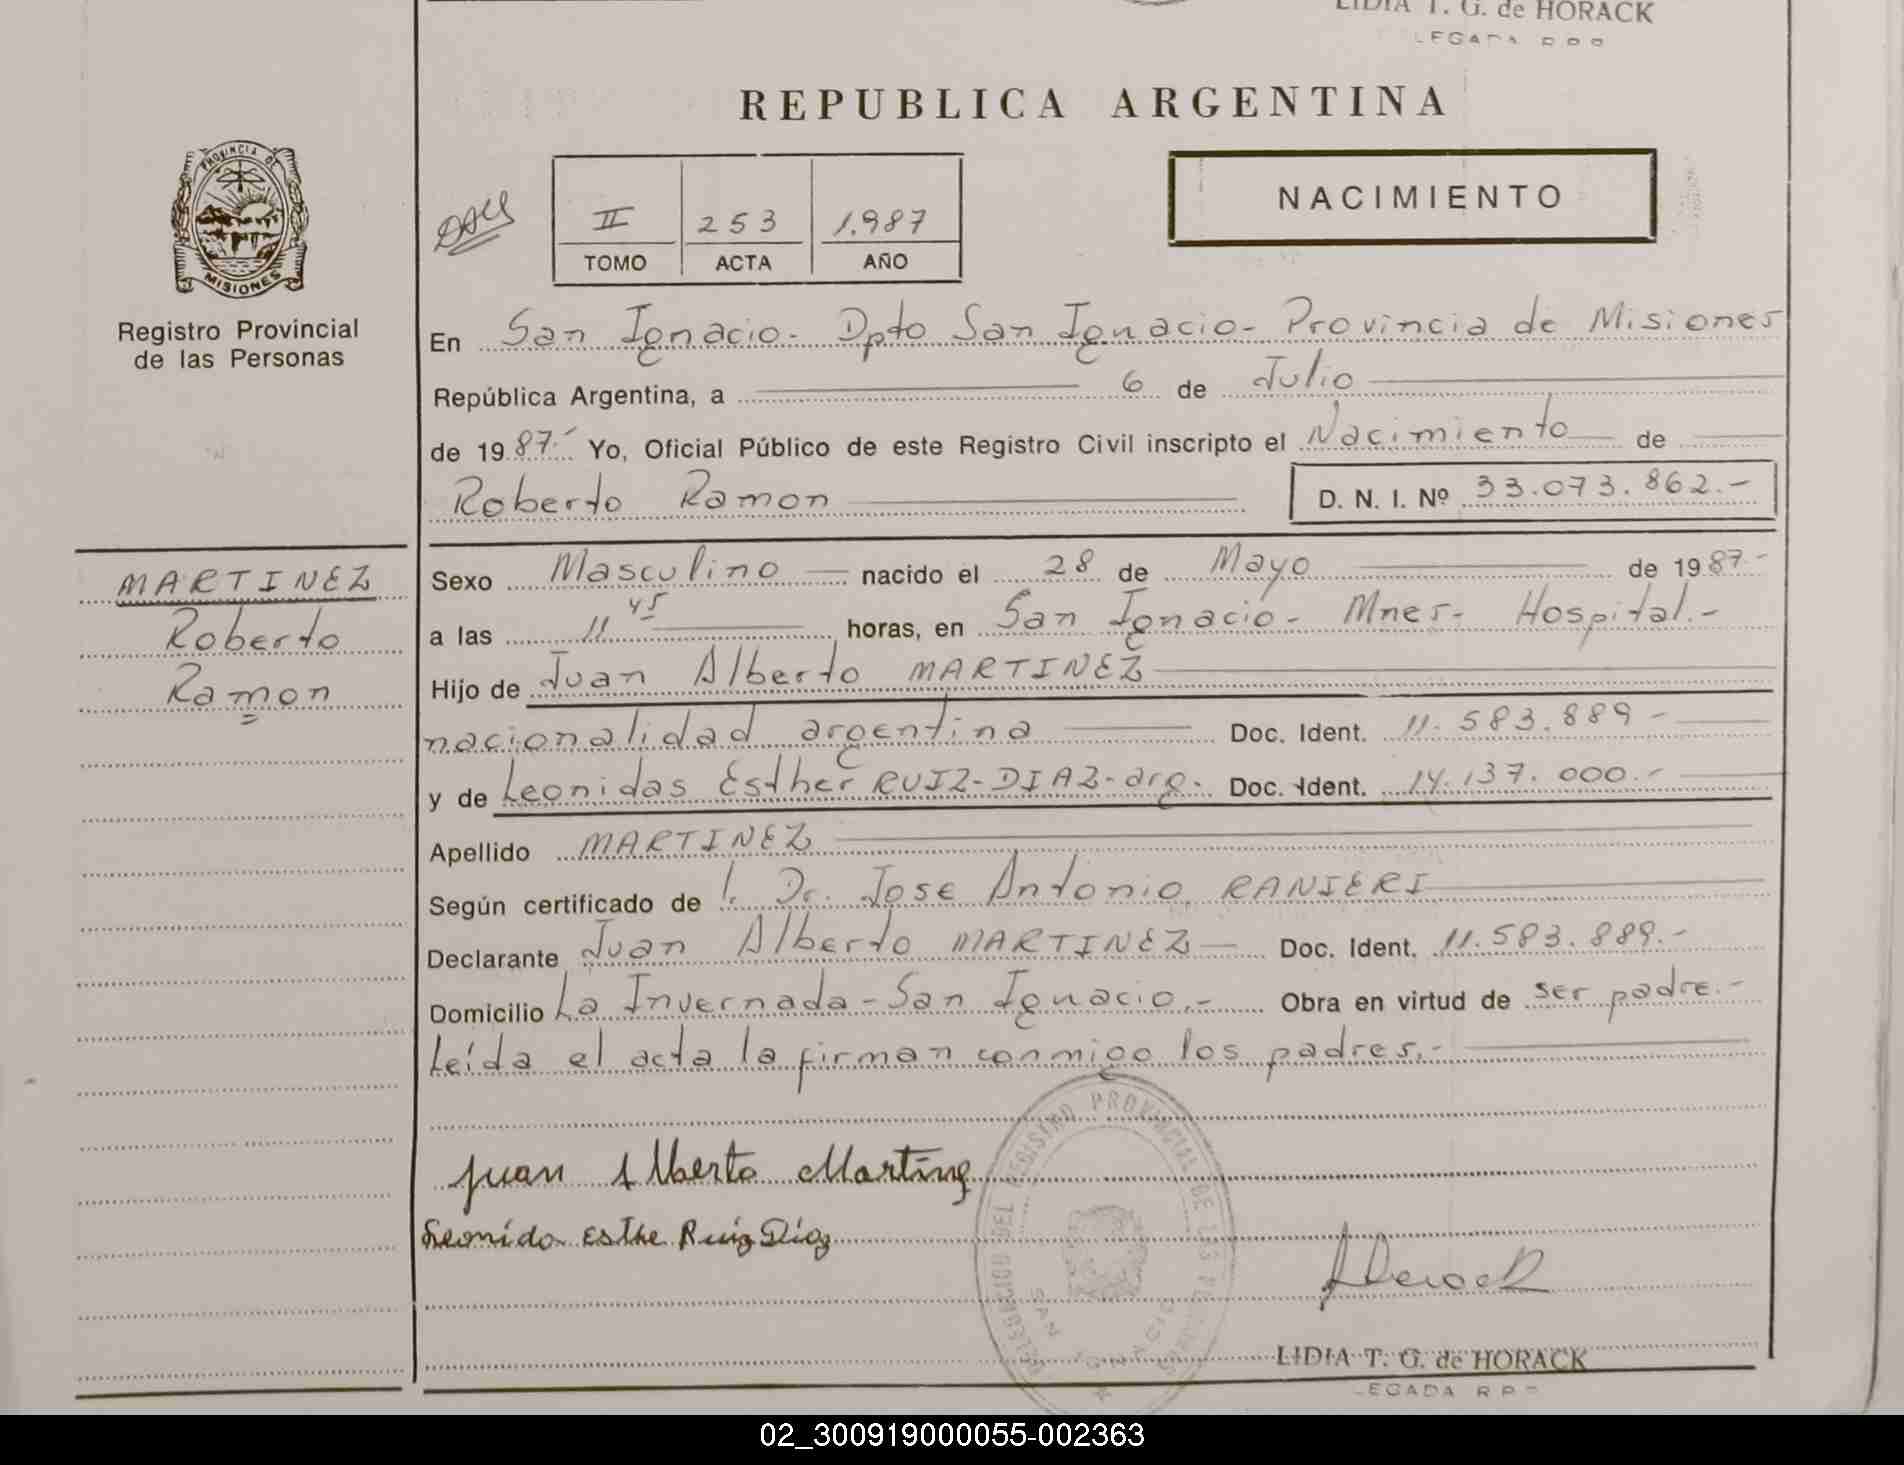 LIDIA T. G. de HORACK
REPUBLICA ARGENTINA
PROVINCIA DE
MISIONES
Registro Provincial
de las Personas
II 253 1.987
TOMO ACTA AÑO
NACIMIENTO
En San Ignacio- Dpto San Ignacio- Provincia de Misiones
República Argentina, a 6 de Julio
de 1987.- Yo, Oficial Público de este Registro Civil inscripto el Nacimiento de
Roberto Ramon D. N. I. Nº 33.073.862.-
MARTINEZ
Roberto
Ramon
Sexo Masculino nacido el 28 de Mayo de 1987-
a las 11 45 horas, en San Ignacio- Mnes- Hospital.-
Hijo de Juan Alberto MARTINEZ
nacionalidad argentina Doc. Ident. 11.583.889-
y de Leonidas Esther RUIZ-DIAZ-arg. Doc. Ident. 14.137.000.-
Apellido MARTINEZ
Según certificado de l. Dr. Jose Antonio RANIERI
Declarante Juan Alberto MARTINEZ Doc. Ident. 11.583.889.-
Domicilio La Invernada-San Ignacio.- Obra en virtud de ser padre.-
Leída el acta la firman conmigo los padres.-
Juan Alberto Martinez
Leonida Esthe Ruiz Diaz
DEL REGISTRO PROVINCIAL DE LAS
SAN IGNACIO
LIDIA T. G. de HORACK
02_300919000055-002363